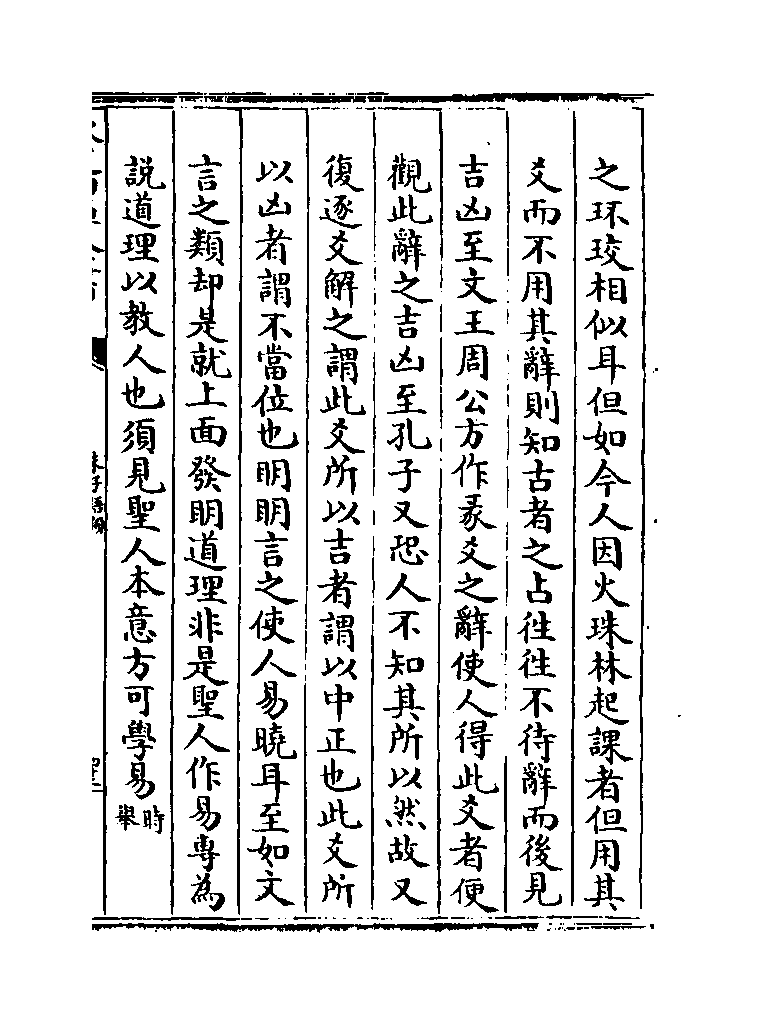 之环珓相似耳但如今人因火珠林起課者但用其
爻而不用其辭則知古者之占徃徃不待辭而後見
吉凶至文王周公方作彖爻之辭使人得此爻者便
觀此辭之吉凶至孔子又恐人不知其所以然故又
復逐爻解之謂此爻所以吉者謂以中正也此爻所
以凶者謂不當位也明明言之使人易曉耳至如文
言之類却是就上面發明道理非是聖人作易專為
説道理以教人也須見聖人本意方可學易時舉
朱子語類